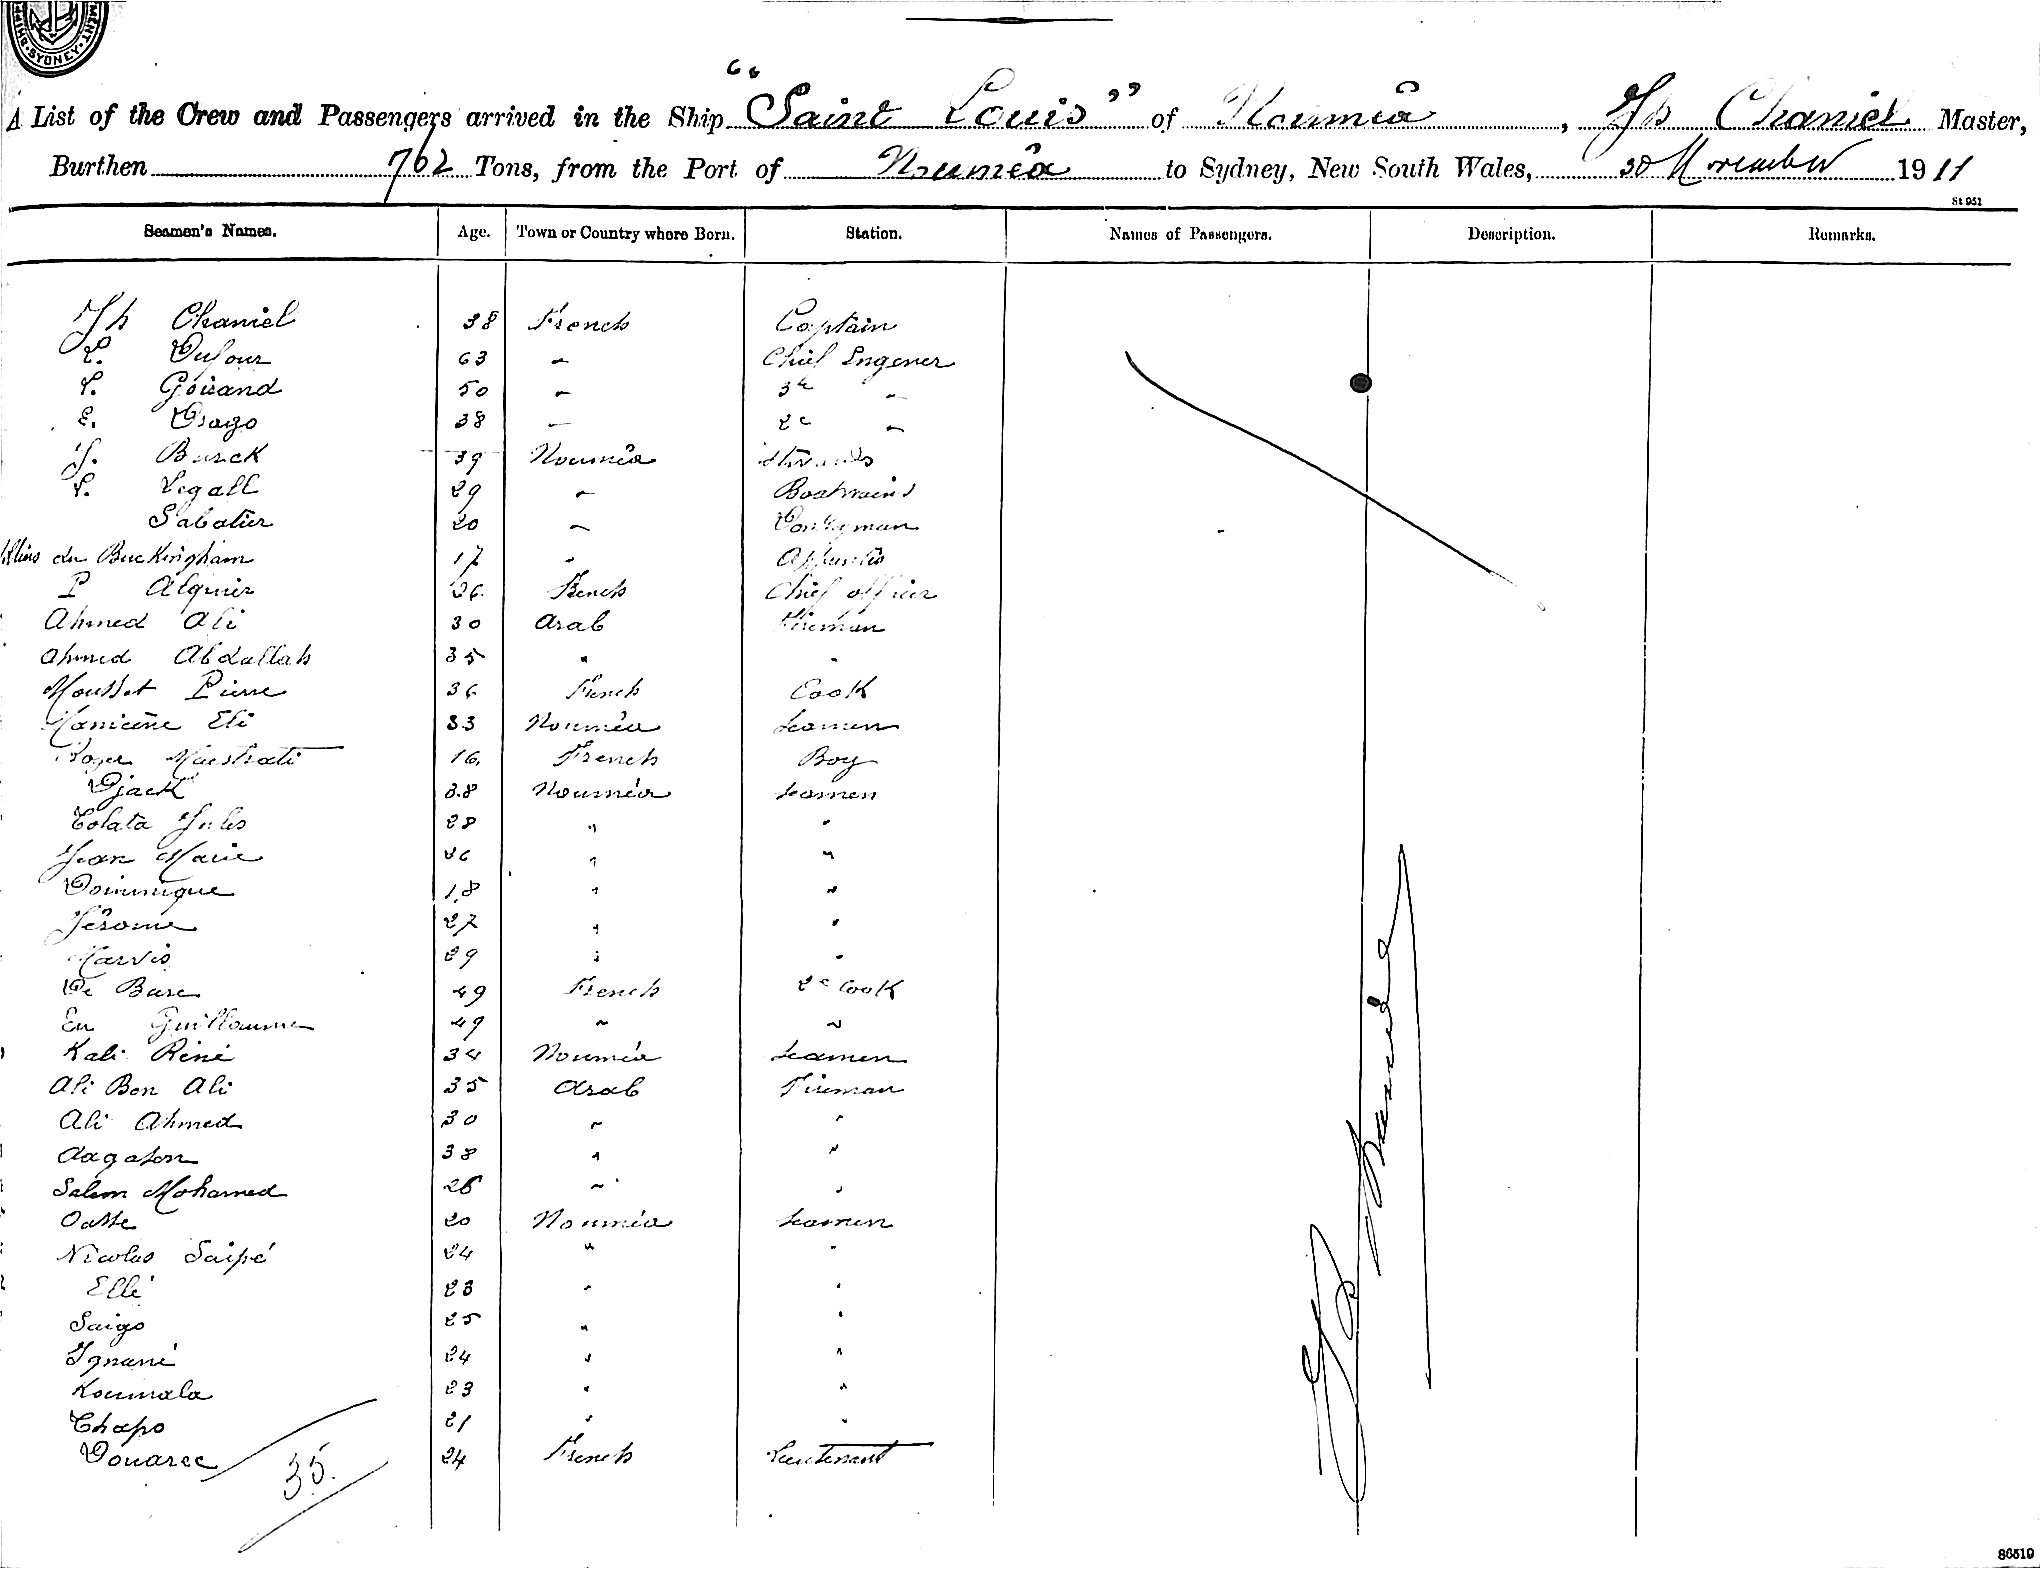 SYDNEY
A List of the Crew and Passengers arrived in the Ship "Saint Louis" of Nouméa, Jh Chaniel Master,
Burthen 762 Tons, from the Port of Nouméa to Sydney, New South Wales, 30 November 1911
St 951
Seamen's Names. Age. Town or Country where Born. Station. Names of Passengers. Description. Remarks.
Jh Chaniel 38 French Captain
L. Dufour 63 " Chief Ingener
L. Goirand 50 " 3e "
E. Drago 38 " 2e "
J. Burck 39 Nouméa
L. Legall 29 " Boatmains
Sabatier 20 " Donkeyman
du Buckingham 17 "
P Alquier 36 French Chief officer
Ahmed Ali 30 Arab Fireman
Ahmed Abdallah 35 " "
Mousset Pierre 36 French Cook
Maniciène Eli 33 Nouméa Seamen
Roger Maestrati 16 French Boy
Djack 38 Nouméa Seamen
Tolata Jules 28 " "
Jean Marie 26 " "
Dominique 18 " "
Jérome 27 " "
Marvis 29 " "
De Bure 49 French 2e Cook
Eu Guillaume 49 " "
Kali Réné 34 Nouméa Seamen
Ali Ben Ali 35 Arab Fireman
Ali Ahmed 30 " "
Aagaton 38 " "
Salem Mohamed 26 " "
Oatte 20 Nouméa Seamen
Nicolas Saipé 24 " "
Ellé 23 " "
Saigo 25 " "
Ignané 24 " "
Koumala 23 " "
Chapo 21 " "
Douarec 24 French Lieutenant
35.
86519